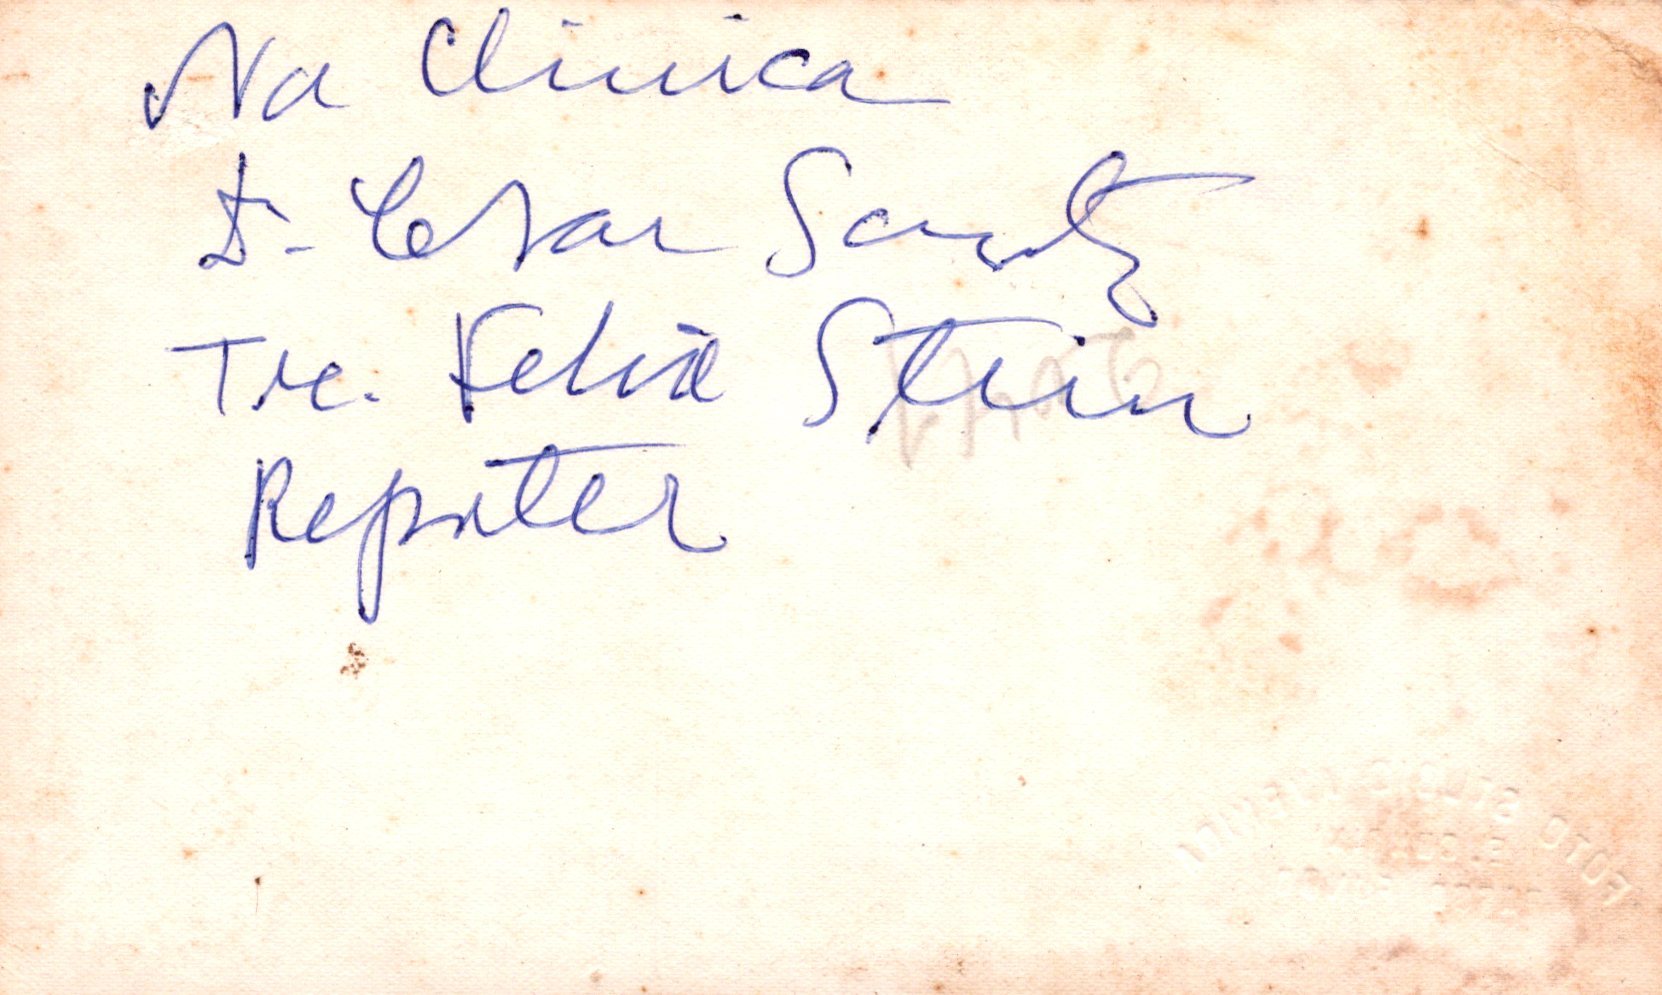 Na Clinica
Dr. Cesar Santos
Tte. Felix Stein
Reporter
FOTO STUDIO